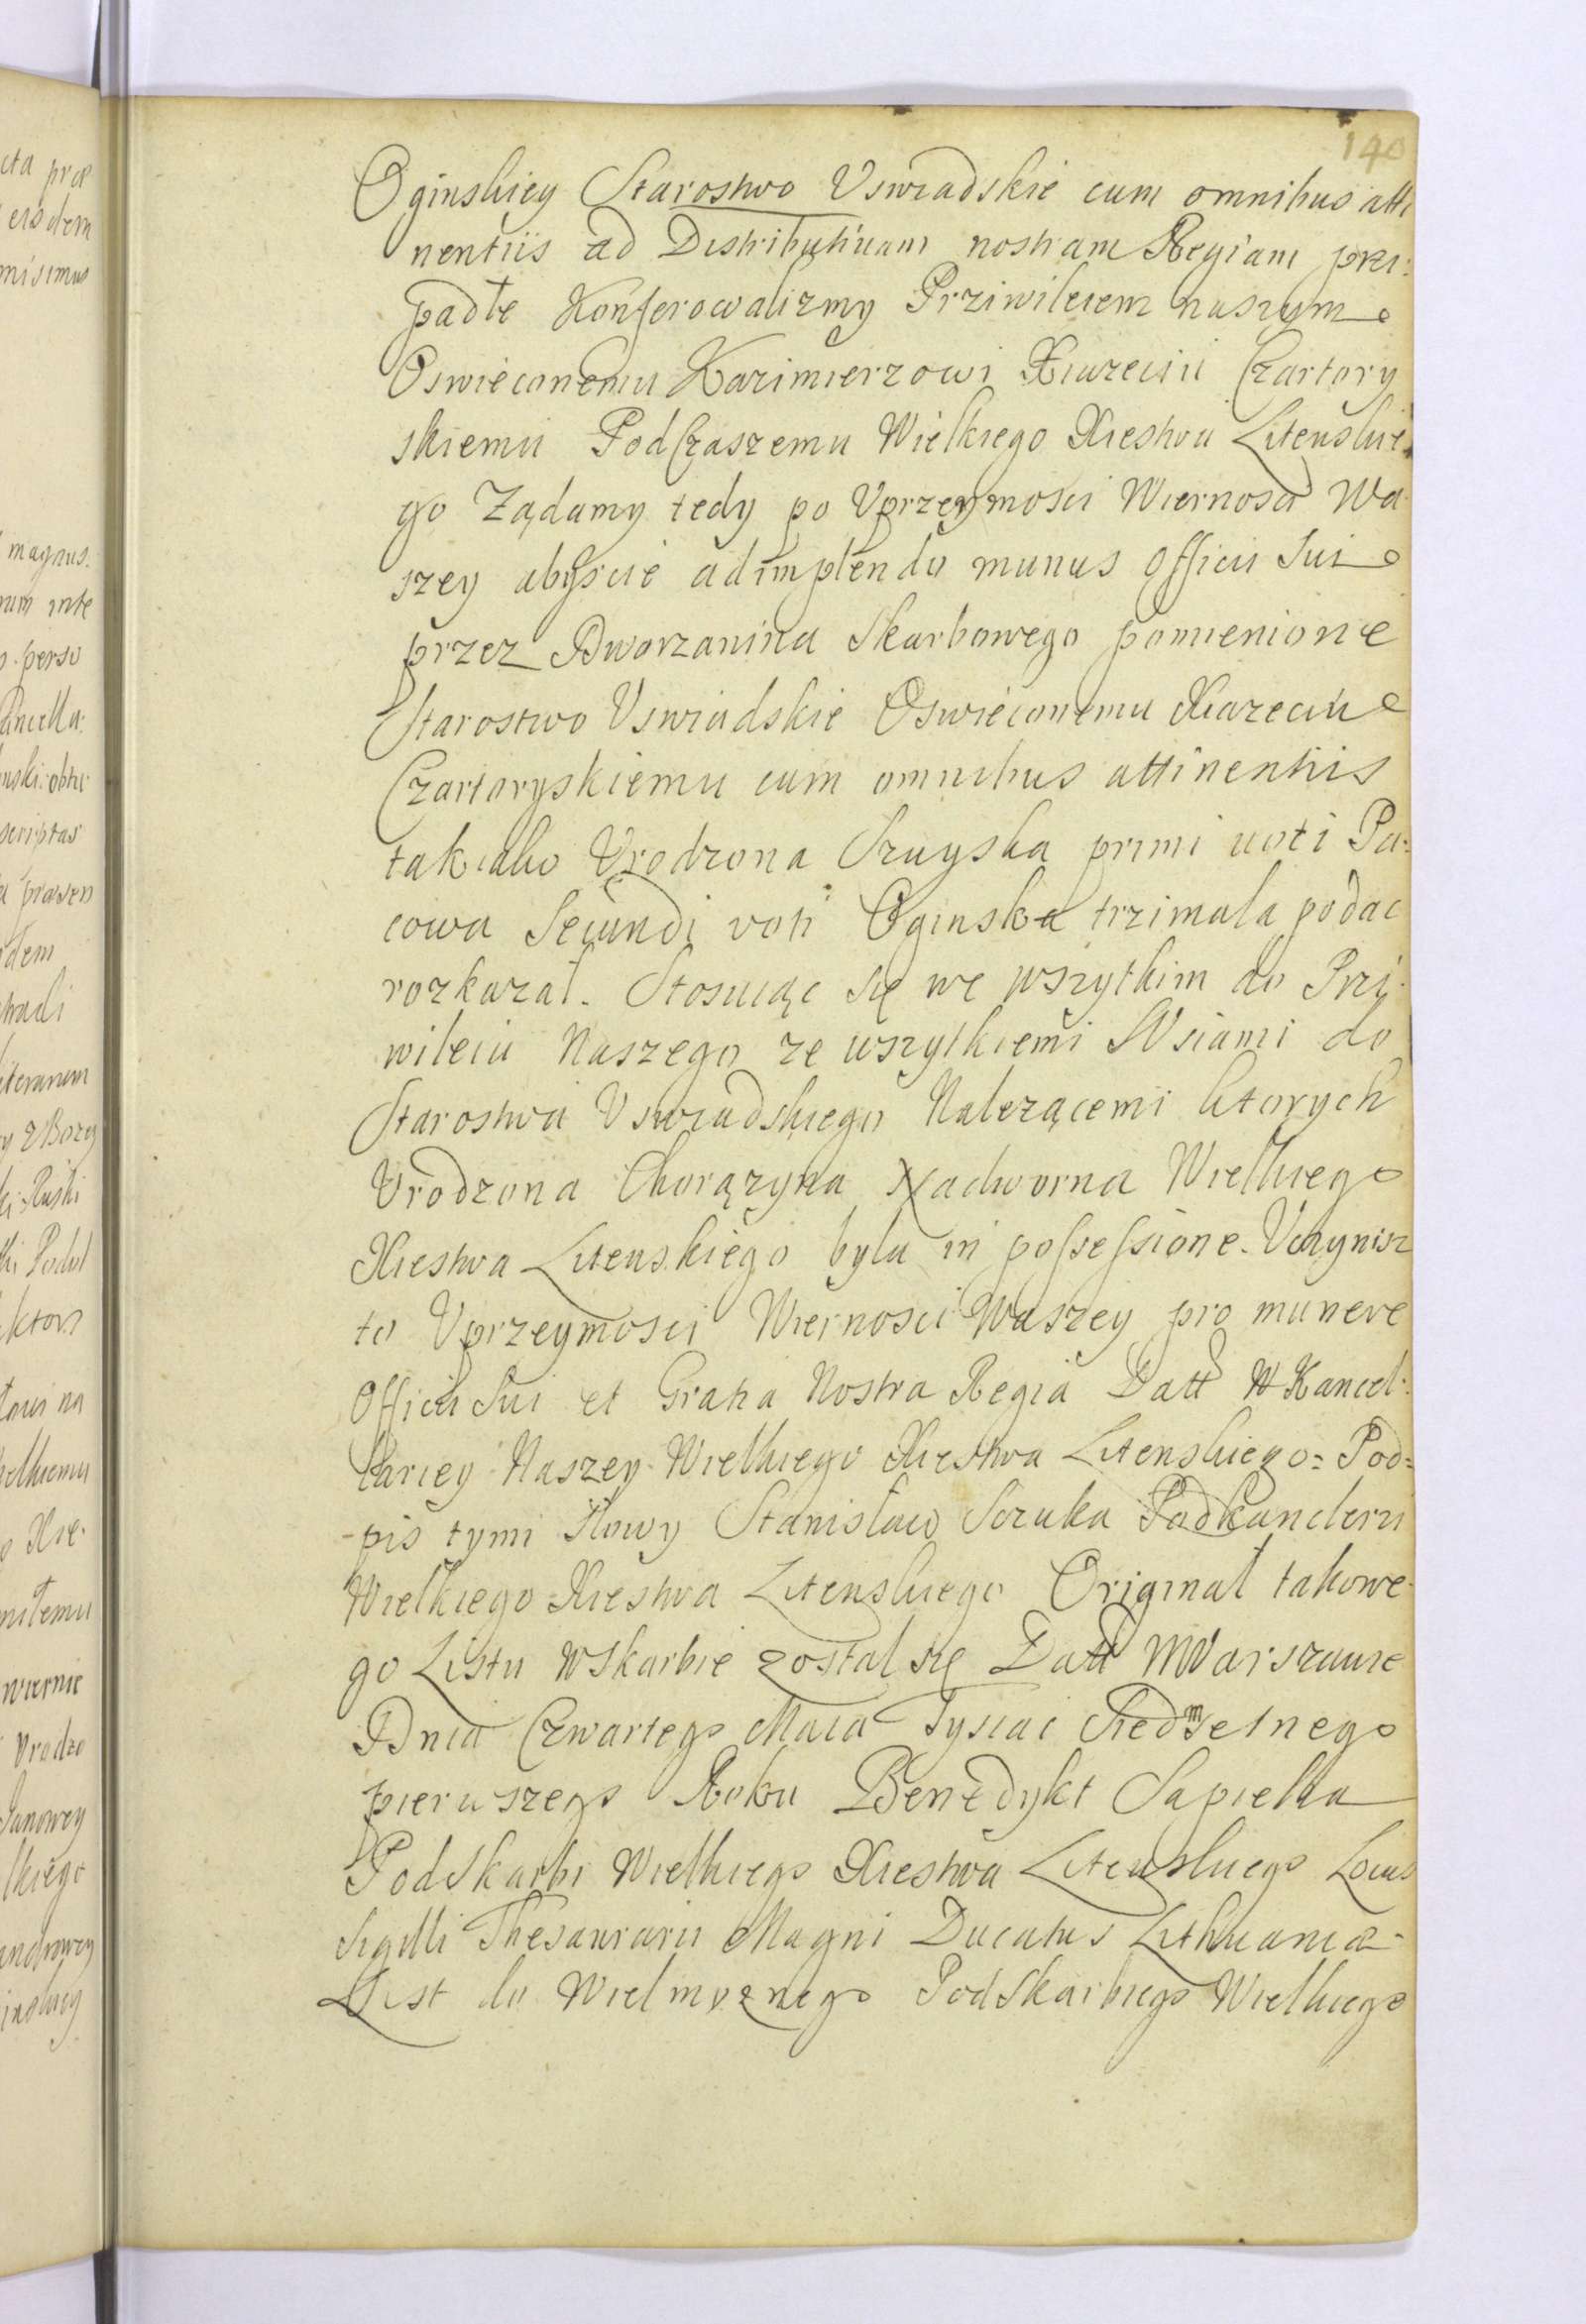 140
Oginskiey Starostwo Uswiadskie cum omnibus atti
nentiis ad Distributivam nostram Regiam przi:
padłe Konferowalizmy Prziwileiem naszym
Oswieconemu Kazimierzowi Xiazeciu Czartory
skiemu PodCzaszemu Wielkiego Xiestwa Litewskie
go Ządamy tedy po Vprzeymosci Wiernosci Wa
szey abyscie adimplendo munus officii sui
przez Dworzanina Skarbowego pomienione
Starostwo Vswiadskie Oswieconemu Xiazeciu
Czartoryskiemu cum omnibus attinentiis
tak iako Vrodzona Szuyska primi voti Pa:
cowa Secundi voti Oginska trzimala podac
rozkazał. Stosuiąc się we wszytkim do Przi
wileiu Naszego ze wszytkiemi Wsiami do
Starostwa Vswiadskiego Nalezącemi ktorych
Vrodzona Chorązyna Nadworna Wielkiego
Xiestwa Litewskiego byla in possessione. Vczynisz
to Vprzeymosci Wiernosci Waszey pro munere
Officii Sui et Gratia Nostra Regia Datt W Kancel:
lariey Naszey Wielkiego Xiestwa Litewskiego: Pod=
-pis tymi słowy Stanisław Sczuka Podkanclerzi
Wielkiego Xiestwa Litewskiego Originał takowe
go Listu wSkarbie został się Datt WWarszawie
Dnia Czwartego Maia Tysiac Siedmsetnego
pierwszego Roku Benedykt Sapieha
PodSkarbi Wielkiego Xiestwa Litewskiego Locus
Sigilli Thesaurarii Magni Ducatus Lithuaniæ
List do Wielmoznego PodSkarbiego Wielkiego